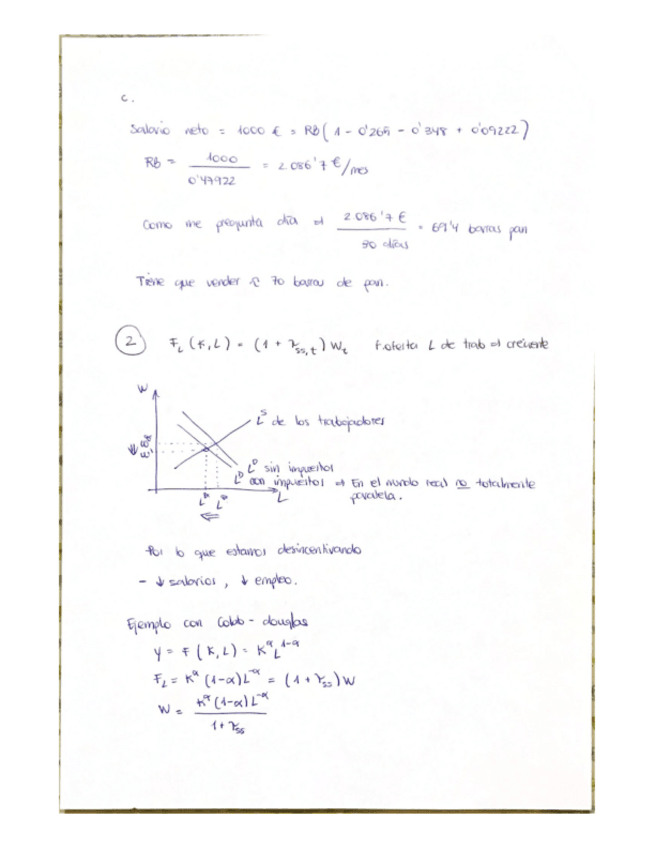 c.
Salario neto = 1000 € = RB( 1 - 0'265 - 0'348 + 0'09222)
RB = 1000 / 0'47922 = 2.086'7 €/mes
Como me pregunta día ⇒ 2.086'7 € / 30 días = 69'4 barras pan
Tiene que vender 70 barras de pan.
2 F_L (K,L) = (1 + τ_ss,t) W_t f.oferta L de trab ⇒ creciente
W
L^S de los trabajadores
L^D sin impuestos
L^D con impuestos ⇒ En el mundo real no totalmente
L paralela.
L* L*
Por lo que estamos desincentivando
- ↓ salarios, ↓ empleo.
Ejemplo con Cobb - douglas
Y = F (K, L) = K^α L^1-α
F_L = K^α (1-α) L^-α = (1 + τ_ss) W
W = K^α (1-α) L^-α / 1 + τ_ss